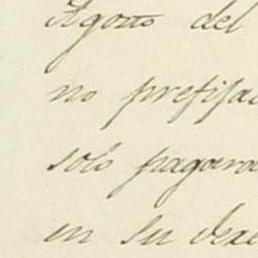 Agosto del
no prefija
solo pagara
en su dere